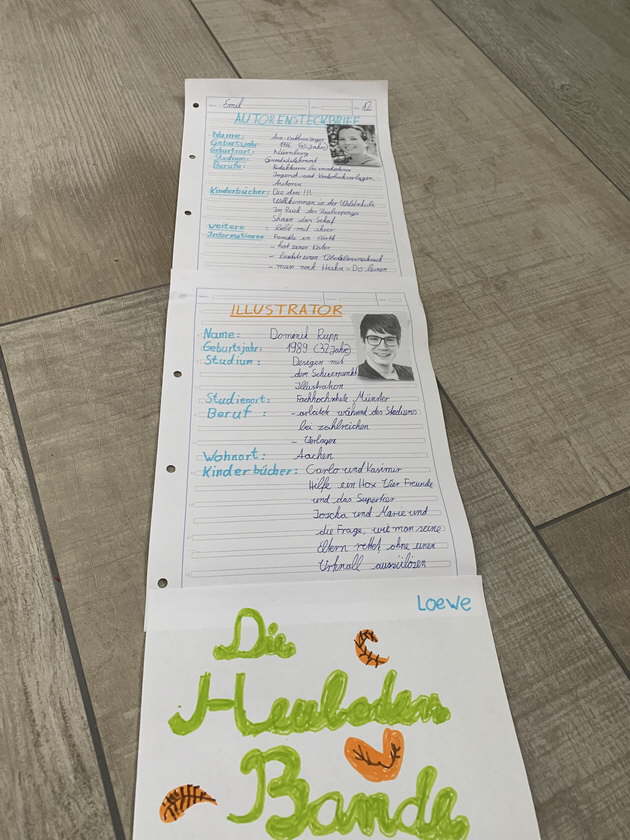 Emil 12
AUTORENSTECKBRIEF
Name:
Geburtsjahr: 1986
Geburtsort: Nürnberg
Studium: Grundschullehramt
Berufe:
Jugend und Kinderbuchverlagen
Autorin
Kinderbücher: Die drei !!!
Willkommen in der Waldschule
Im Reich des
Shaun das Schaf
Weitere : lebt mit ihrer
Informationen Familie in Fürth
- hat einen Kater
-
-
ILLUSTRATOR
Name: Dominik Rupp
Geburtsjahr: 1989 (32 Jahre)
Studium: Design mit
dem Schwerpunkt
Illustration
Studienort: Fachhochschule Münster
Beruf : - arbeitet während des Studiums
bei zahlreichen
- Verlagen
Wohnort: Aachen
Kinderbücher: Carlo und Kasimir
Hilfe ein Hox Vier Freunde
und das Supertier
Joscha und Marie und
die Frage, wie man seine
Eltern rettet, ohne einen
Urknall auszulösen
Loewe
Die
Heuboden
Bande